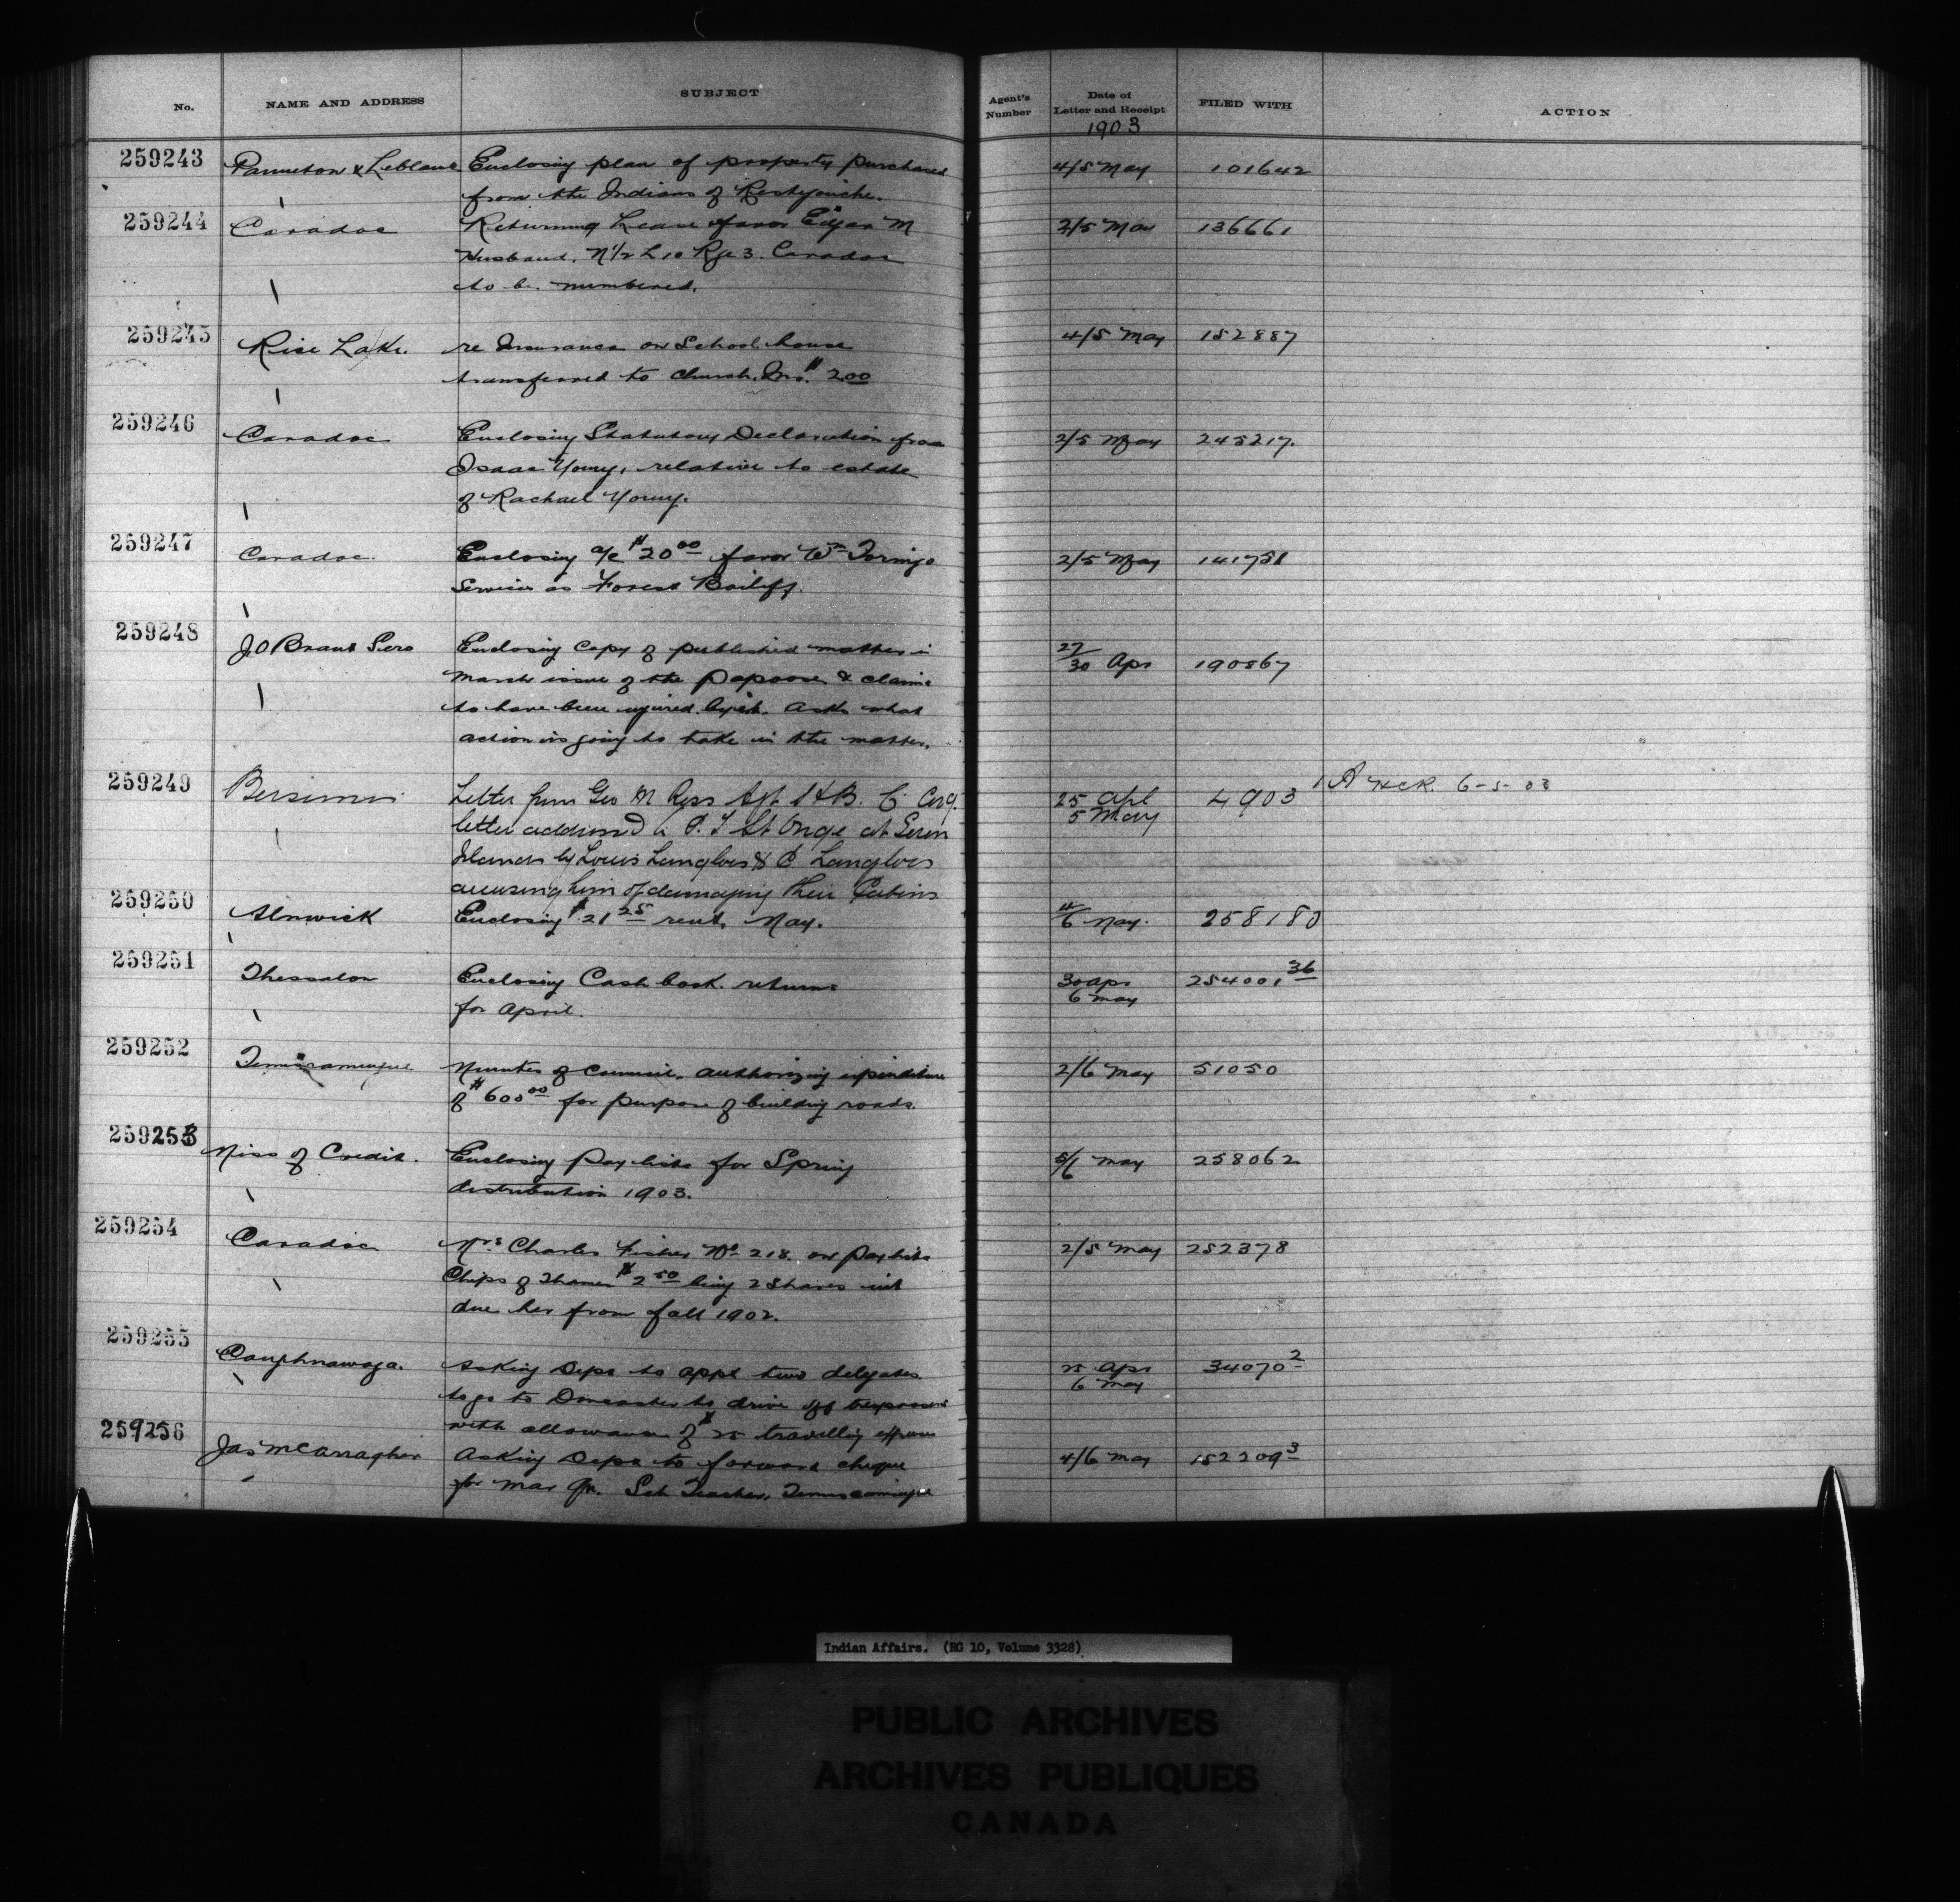 No. NAME AND ADDRESS SUBJECT Agent's Number Date of Letter and Receipt FILED WITH ACTION
1903
259243 Panneton & Leblanc Enclosing plan of property purchased 4/5 May 101642
from the Indians of Restigouche.
259244 Caradoc Returning Lease favor Edgar M 2/5 May 136661
Husband. N 1/2 L 10 Rge 3. Caradoc
to be numbered.
259245 Rice Lake. re Insurance on School house 4/5 May 152887
transferred to Church. Ins. $2.00
259246 Caradoc Enclosing Statutory Declaration from 2/5 May 245217.
Isaac Young, relative to estate
of Rachael Young.
259247 Caradoc. Enclosing a/c $20.00 favor Wm 2/5 May 141751
Services as Forest Bailiff.
259248 J O Brant Sero Enclosing copy of published matter in 27/30 Apr 190867
March issue of the Papoose & claims
to have been injured by it. Asks what
action is going to take in the matter.
259249 Bersimis Letter from Geo M Ross Agt H.B. C 25 Apl 4903 HCR. 6-5-03
letter addressed to P. T St Onge at Seven 5 May
Islands by Louis Langlois & C Langlois
accusing him of damaging their Cabins
259250 Alnwick Enclosing $21.25 rent, May. 4/6 May. 258180
259251 Thessalon Enclosing Cash book returns 30 Apr 254001 36
for April. 6 May
259252 Temiscamingue Minutes of Council. authorizing expenditure 2/6 May 51050
of $600.00 for purpose of building roads.
259253 Miss of Credit. Enclosing Paylists for Spring 5/6 May 258062
distribution 1903.
259254 Caradoc Mrs Charles Fisher No 218. on paylists 2/5 May 252378
Chips of Thames $2.50 being 2 shares int
due her from fall 1902.
259255 Caughnawaga. Asking Dept to appt two delegates 25 Apr 34070 2
to go to Doncaster to drive off trespassers 6 May
with allowance of $25 travelling expenses
259256 Jas McCarragher Asking Dept to forward cheque 4/6 May 152209 3
for Mar Qr. Sch Teacher, Temiscamingue
Indian Affairs. (RG 10, Volume 3328)
PUBLIC ARCHIVES
ARCHIVES PUBLIQUES
CANADA